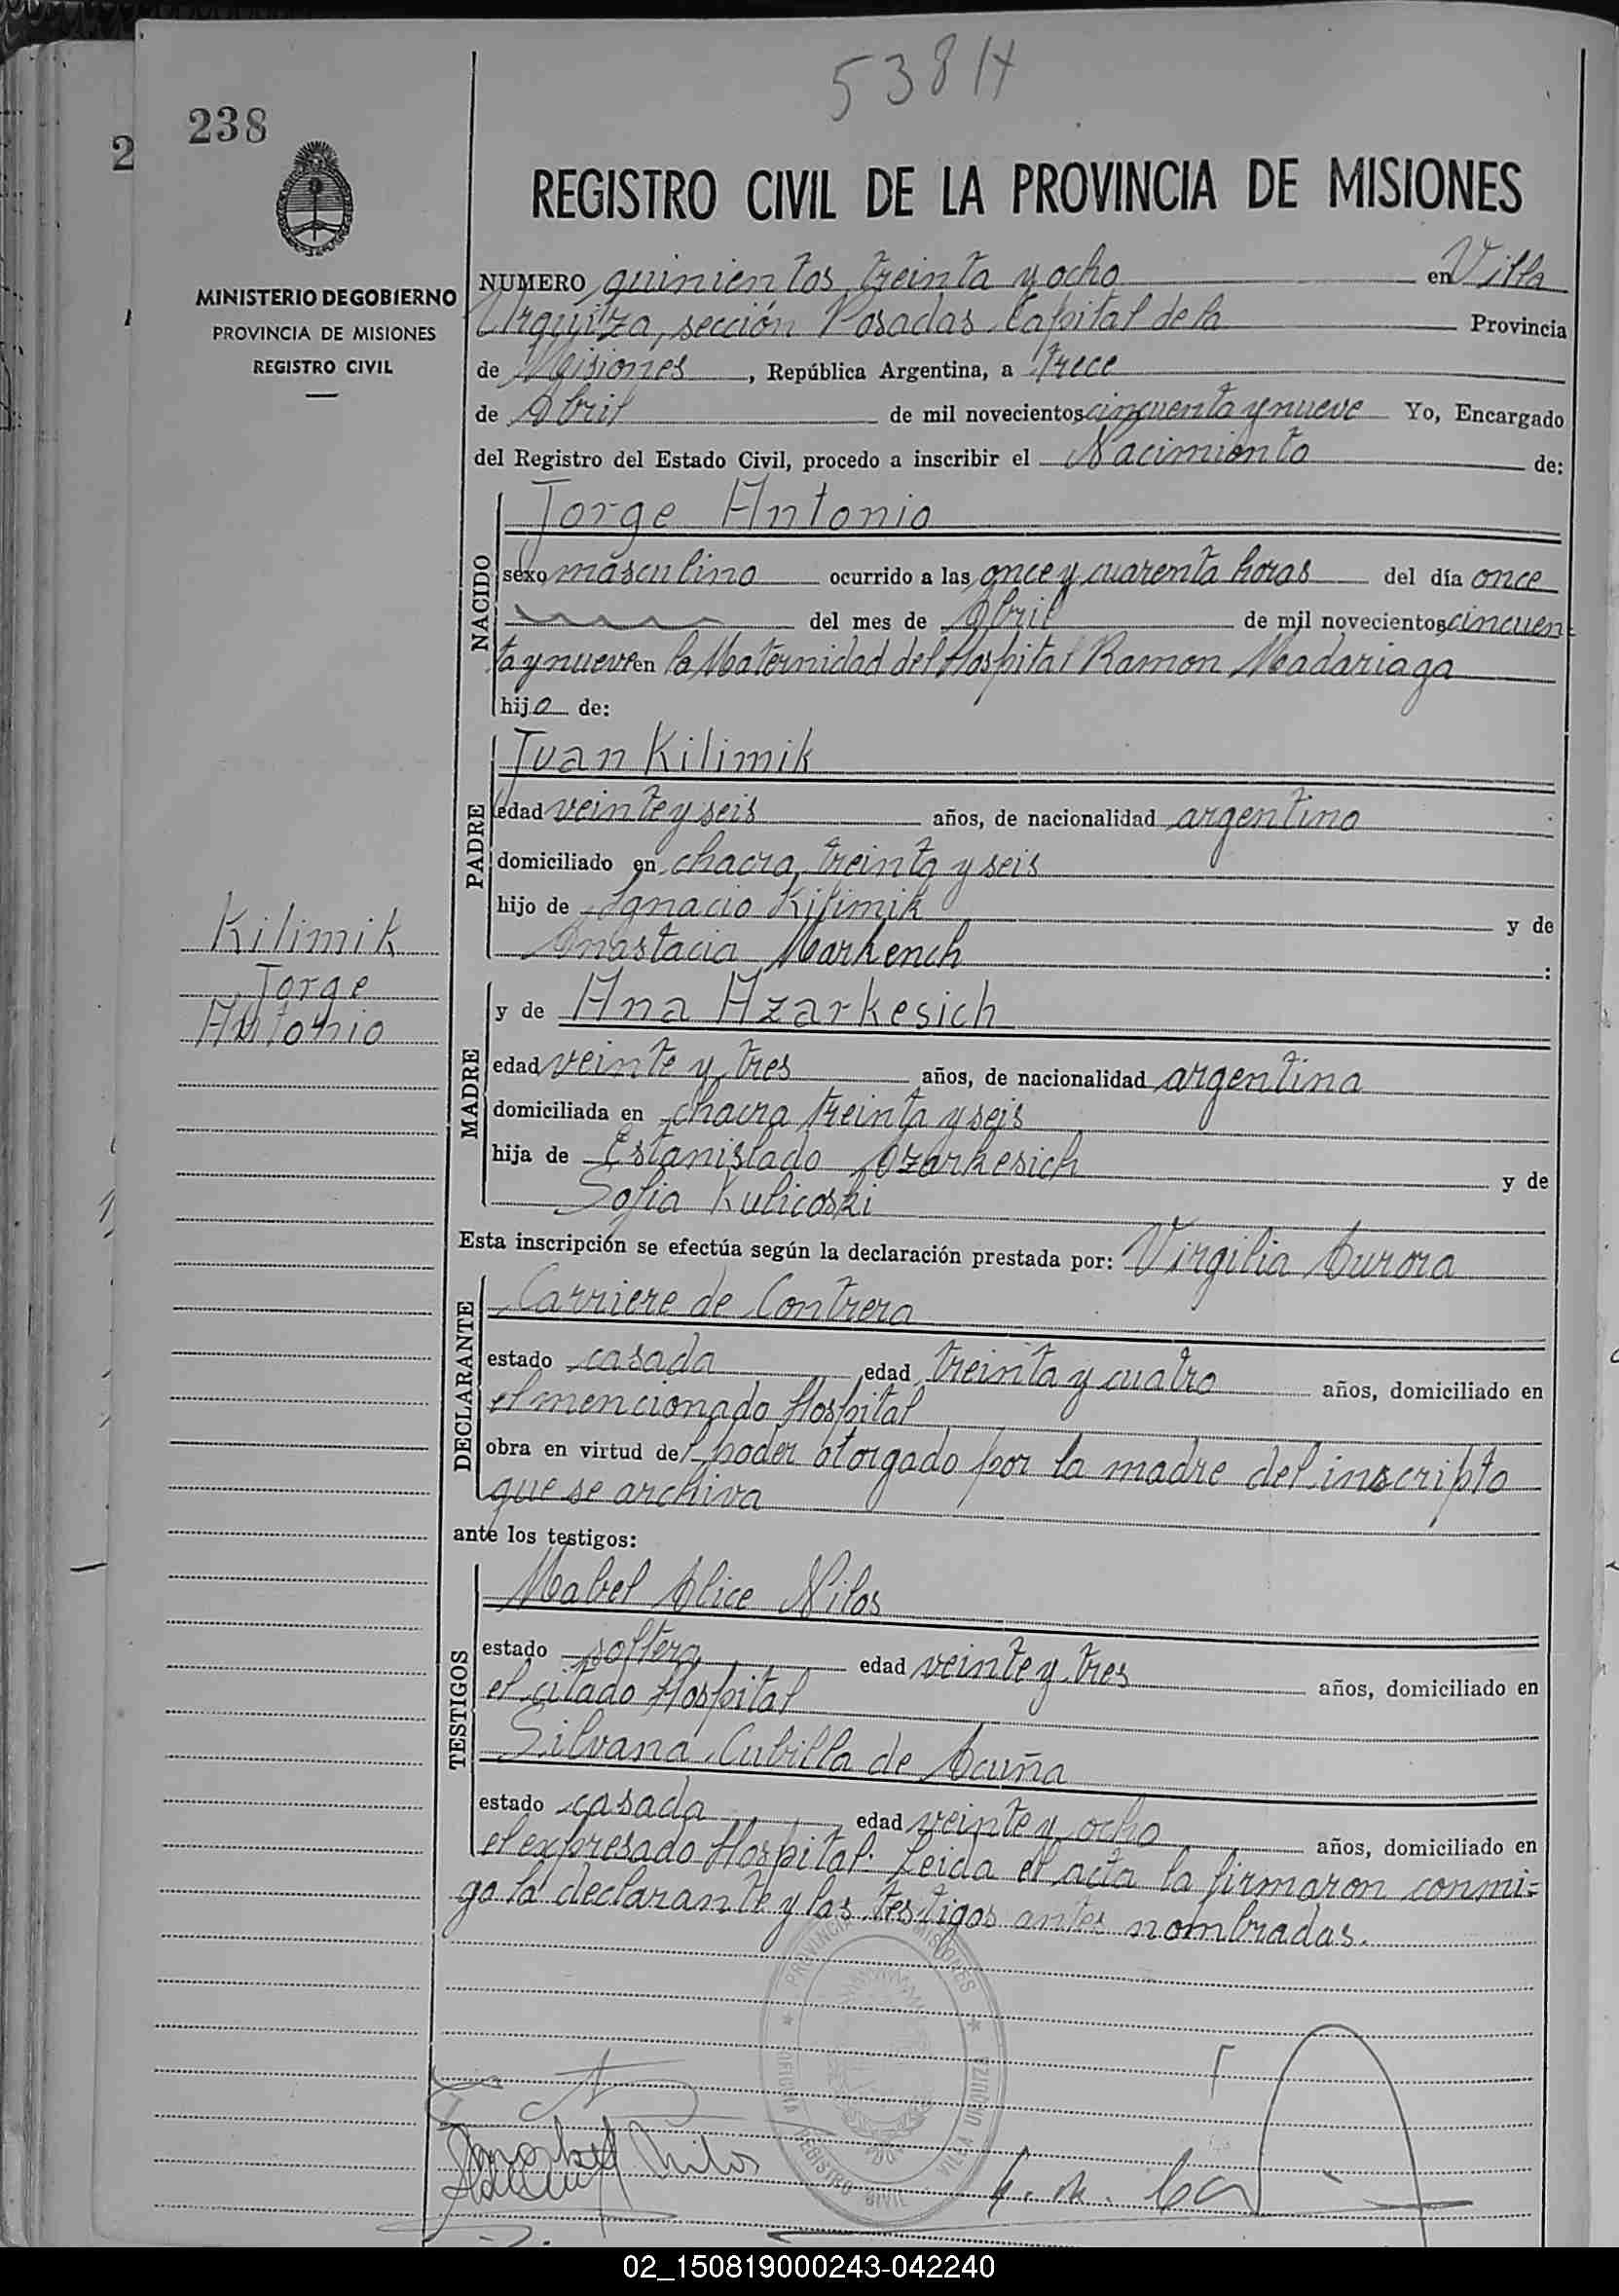 538 H
238
2
REGISTRO CIVIL DE LA PROVINCIA DE MISIONES
MINISTERIO DE GOBIERNO
PROVINCIA DE MISIONES
REGISTRO CIVIL
NUMERO quinientos treinta y ocho en Villa
Urquiza, sección Posadas Capital de la Provincia
de Misiones, República Argentina, a trece
de Abril de mil novecientos cincuenta y nueve Yo, Encargado
del Registro del Estado Civil, procedo a inscribir el Nacimiento de:
NACIDO
Jorge Antonio
sexo masculino ocurrido a las once y cuarenta horas del día once
del mes de Abril de mil novecientos cincuen
ta y nueve en la Maternidad del Hospital Ramon Madariaga
hijo de:
PADRE
Juan Kilimik
edad veinte y seis años, de nacionalidad argentino
domiciliado en chacra treinta y seis
hijo de Ignacio Kilimik y de
Anastacia Markench :
Kilimik
Jorge
Antonio
MADRE
y de Ana Azarkesich
edad veinte y tres años, de nacionalidad argentina
domiciliada en chacra treinta y seis
hija de Estanislado Azarkesich y de
Sofia Kulicoski
Esta inscripción se efectúa según la declaración prestada por: Virgilia Aurora
DECLARANTE
Carriere de Contrera
estado casada edad treinta y cuatro años, domiciliado en
el mencionado Hospital
obra en virtud del poder otorgado por la madre del inscripto
que se archiva
ante los testigos:
TESTIGOS
Mabel Alice Nilos
estado soltera edad veinte y tres años, domiciliado en
el citado Hospital
Silvana Cubilla de Acuña
estado casada edad veinte y ocho años, domiciliado en
el expresado Hospital. Leida el acta la firmaron conmi=
go la declarante y las testigos antes nombradas.
PROVINCIA MISIONES
OFICINA REGISTRO CIVIL VILLA URQUIZA
Mabel Nilos
02_150819000243-042240